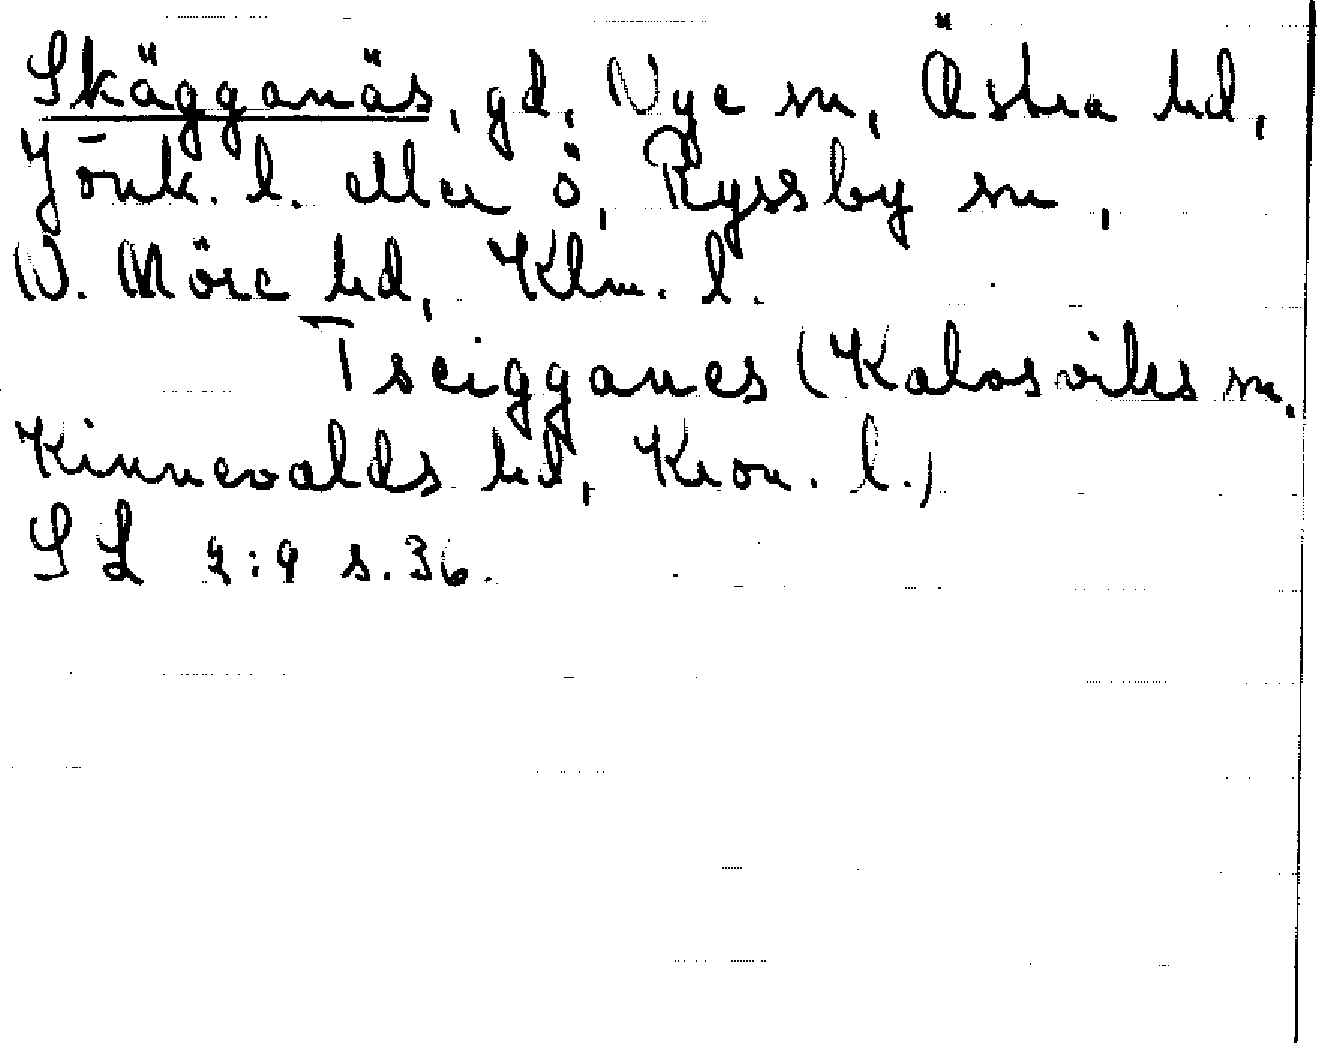 Skägganäs, gd, Nye sn, Östra hd,
Jönk. l. eller ö, Ryssby sn,
N. Möre hd, Klm. l.
Tseigganes (Kalvsviks sn,
Kinnevalds hd, Kron. l.)
SL 2:9 s.36.